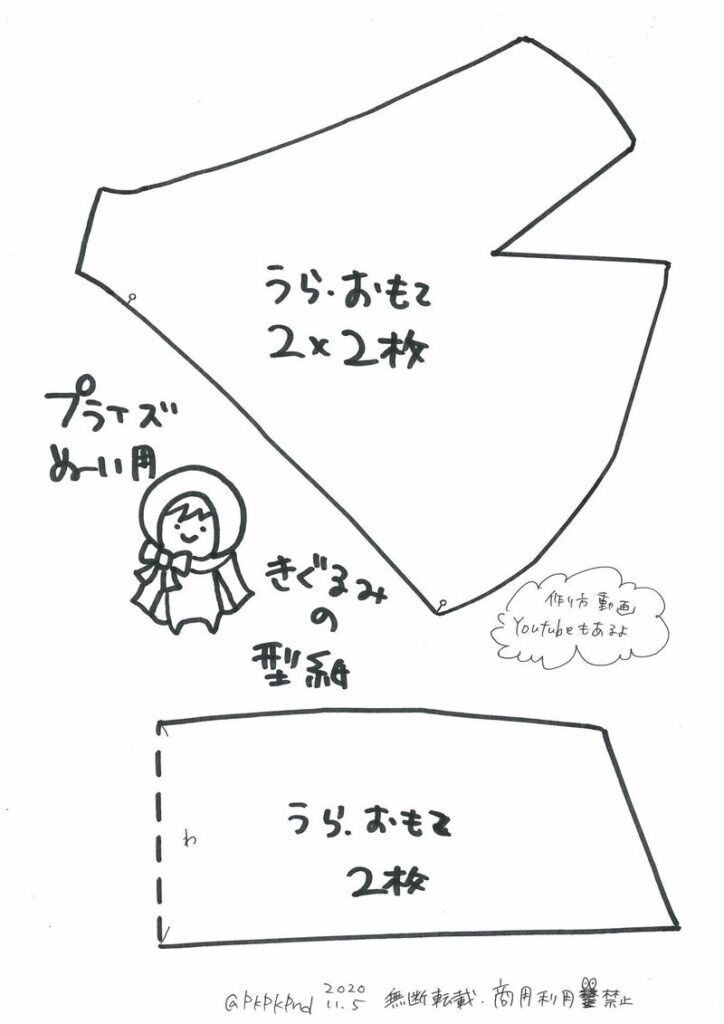 うら.おもて
2×2枚
プライズ
ぬーい用
きぐるみ
の
型紙
作り方動画
Youtubeもあるよ
うら.おもて
2枚
わ
@PKPKPnd 2020 11.5 無断転載.商用利用禁止